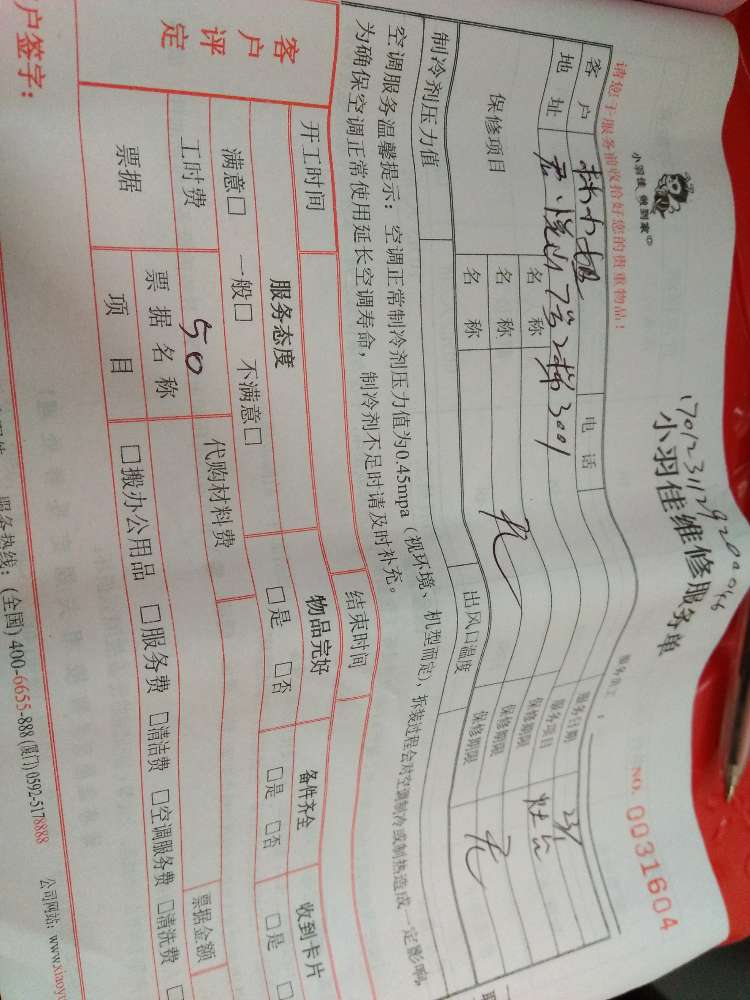 小羽佳 做到家
请您于服务前收拾好您的贵重物品!
小羽佳维修服务单
NO. 0031604
服务员工:
客户 林小姐 电话 服务日期 23/1
地址 君悦山7号2梯3001 服务项目 灶台
保修项目 名称 保修期限
名称 无 保修期限
名称 保修期限 无
制冷剂压力值 出风口温度
空调服务温馨提示:空调正常制冷剂压力值为0.45mpa(视环境、机型而定)拆装过程会对空调制冷或制热造成一定影响,
为确保空调正常使用延长空调寿命,制冷剂不足时请及时补充。
开工时间 结束时间
客户评定 服务态度 物品完好 备件齐全 收到卡片
满意□ 一般□ 不满意□ □是 □否 □是 □否 □是
工时费 50 代购材料费
票据 票据名称 票据金额
项目 □搬办公用品 □服务费 □清洁费 □空调服务费 □清洗费
户签字:
服务热线:(全国)400-6655-888 (厦门)0592-5178888 公司网站:www.xiaoyu